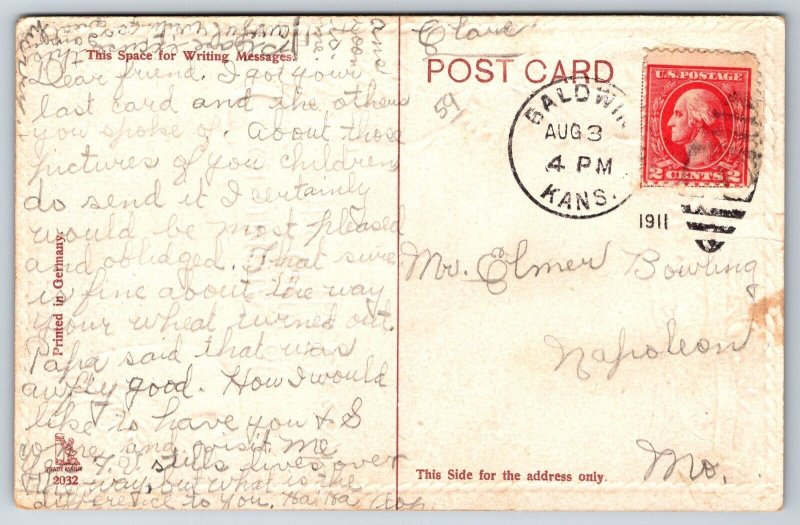 This Space for Writing Messages
Dear friend. I got your
last card and the others
you spoke of. About those
pictures of you children
do send it I certainly
would be most pleased
and obliged. That sure
is fine about the way
your wheat turned out.
Papa said that was
awfly good. How I would
like to have you & S
come and visit me
stills lives over
this way, but what is the
difference to you. Ha Ha
and
soon
hurry
Printed in Germany.
TRADE MARK
2032
Clare
POST CARD
59
BALDWIN
AUG 3
4 PM
KANS.
1911
U.S. POSTAGE
2 CENTS 2
Mr. Elmer Bowling
Napoleon
Mo.
This Side for the address only.